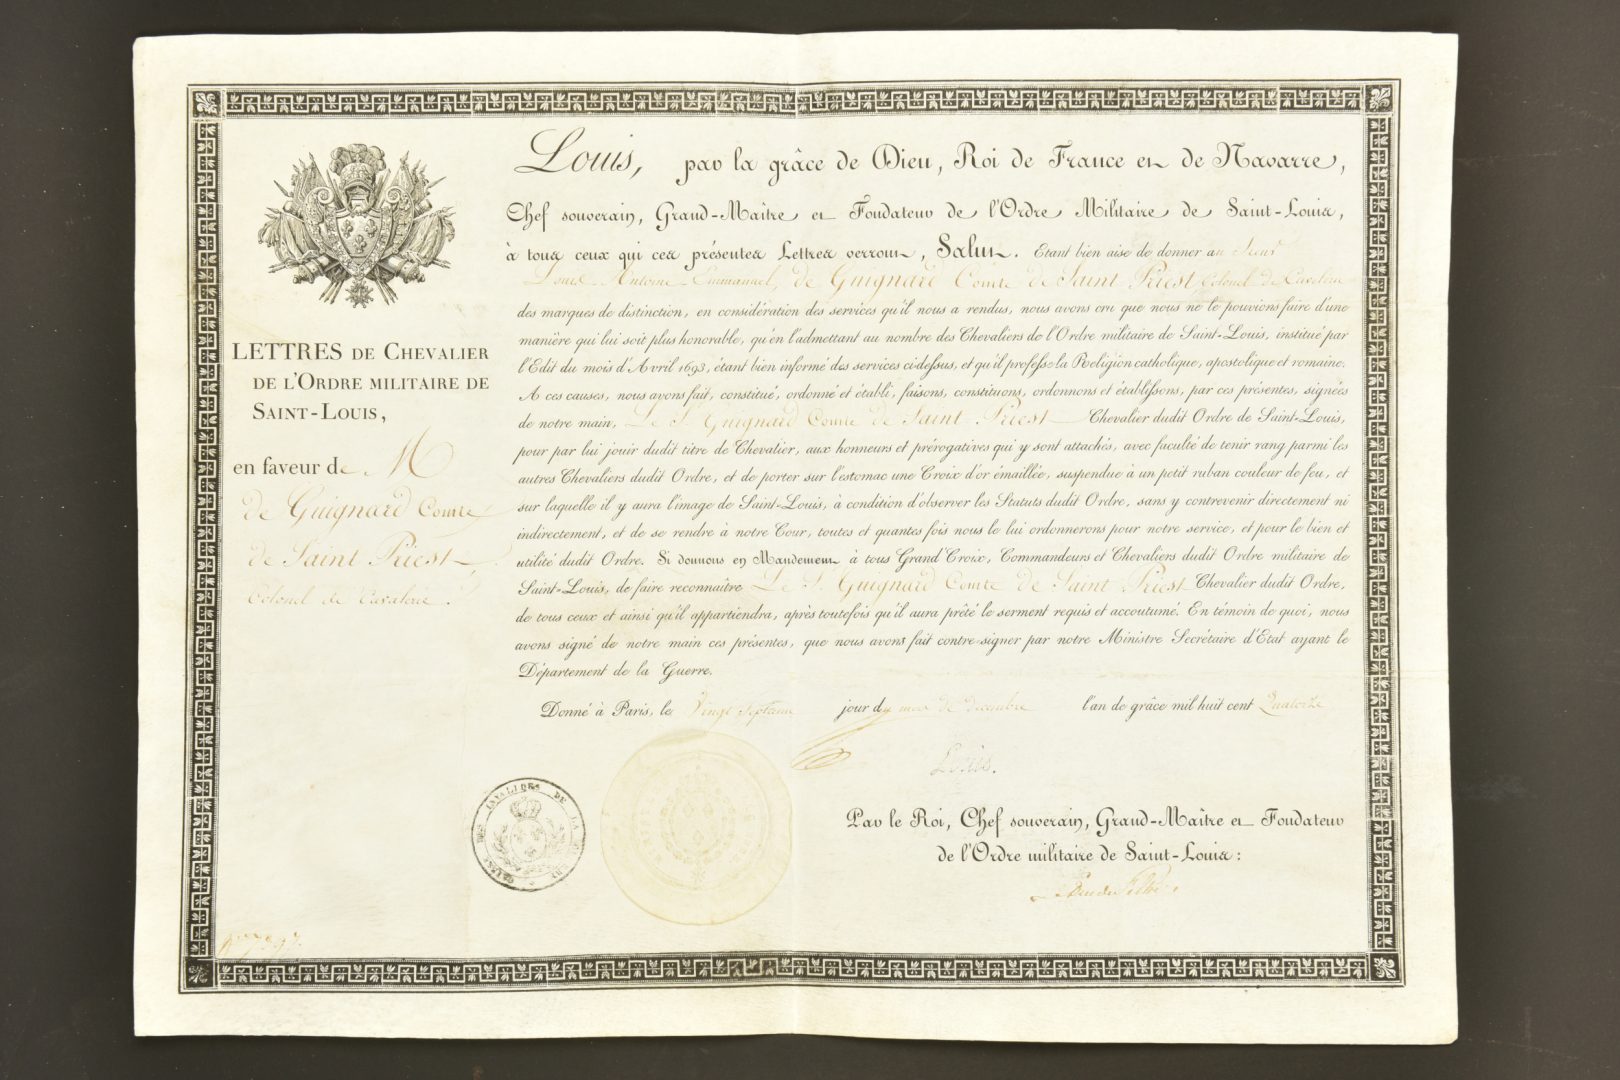 LETTRES DE CHEVALIER
DE L'ORDRE MILITAIRE DE
SAINT-LOUIS,
en faveur de M
de Guignard Comte
de Saint Priest
Colonel de Cavalerie.
Louis, par la grâce de Dieu, Roi de France et de Navarre,
Chef souverain, Grand-Maître et Fondateur de l'Ordre Militaire de Saint-Louis,
à tous ceux qui ces présentes Lettres verront, Salut. Etant bien aise de donner au Sieur
Louis Antoine Emmanuel, de Guignard Comte de Saint Priest Colonel de Cavalerie
des marques de distinction, en considération des services qu'il nous a rendus, nous avons cru que nous ne le pouvions faire d'une
manière qui lui soit plus honorable, qu'en l'admettant au nombre des Chevaliers de l'Ordre militaire de Saint-Louis, institué par
l'Edit du mois d'Avril 1693, étant bien informé des services ci-dessus, et qu'il professe la Religion catholique, apostolique et romaine.
A ces causes, nous avons fait, constitué, ordonné et établi, faisons, constituons, ordonnons et établissons, par ces présentes, signées
de notre main, Le S. Guignard Comte de Saint Priest Chevalier dudit Ordre de Saint-Louis,
pour par lui jouir dudit titre de Chevalier, aux honneurs et prérogatives qui y sont attachés, avec faculté de tenir rang parmi les
autres Chevaliers dudit Ordre, et de porter sur l'estomac une Croix d'or émaillée, suspendue à un petit ruban couleur de feu, et
sur laquelle il y aura l'image de Saint-Louis, à condition d'observer les Statuts dudit Ordre, sans y contrevenir directement ni
indirectement, et de se rendre à notre Cour, toutes et quantes fois nous le lui ordonnerons pour notre service, et pour le bien et
utilité dudit Ordre. Si donnons en Mandement à tous Grand'Croix, Commandeurs et Chevaliers dudit Ordre militaire de
Saint-Louis, de faire reconnaître Le S. Guignard Comte de Saint Priest Chevalier dudit Ordre,
de tous ceux et ainsi qu'il appartiendra, après toutefois qu'il aura prêté le serment requis et accoutumé. En témoin de quoi, nous
avons signé de notre main ces présentes, que nous avons fait contre-signer par notre Ministre Secrétaire d'Etat ayant le
Département de la Guerre.
Donné à Paris, le Vingt Septieme jour du mois de Decembre l'an de grâce mil huit cent Quatorze
Louis.
Par le Roi, Chef souverain, Grand-Maître et Fondateur
de l'Ordre militaire de Saint-Louis:
CAISSE DES INVALIDES DE LA